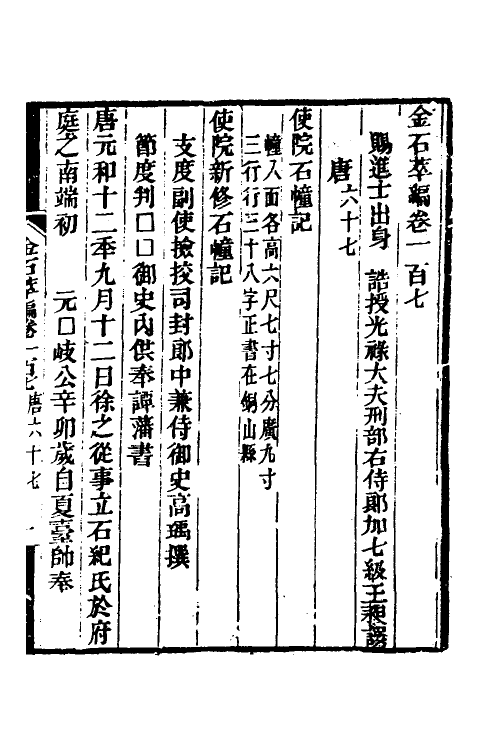 金石萃編卷一百七
賜進士出身　誥授光祿大夫刑部右侍郎加七級王昶譔
唐六十七
使院石幢記
幢八面各高六尺七寸七分廣九寸
三行行三十八字正書在銅山縣
使院新修石幢記
支度副使檢挍司封郎中兼侍御史高瑀撰
節度判□□御史內供奉譚藩書
唐元和十二秊九月十二日徐之從事立石紀氏於府
庭之南端初　元□歧公辛卯歲自夏臺帥奉
金石萃編卷一百七　唐六十七　一